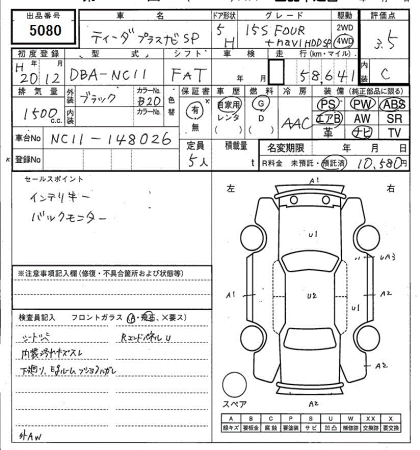 出品番号 車名 ドア形状 グレード 駆動 評価点
5080 ティーダプラスナビSP 5 H 15S FOUR +navi HDD SP 2WD 4WD 3.5
初度登録 型式 シフト 車検 走行(km・マイル) 内装
H 20 12 DBA-NC11 FAT 年 月 58,641 C
排気量 外装 カラーNo. 色替 内装 カラーNo. 保証書 車歴 燃料 冷房 装備(純正品に限る)
1500 c.c. ブラック B20 有 無 自家用 レンタ G D AAC PS PW ABS
エアB AW SR
革 ナビ TV
車台No NC11-148026
定員 積載量 名変期限 年 月 日
登録No. 5人 t R料金 未預託・預託済 10,580円
セールスポイント
インテリキー
バックモニター
左 右
A1
U1
UA3
A1 U2 A2
U1
A2
A2
スペア
※注意事項記入欄(修復・不具合箇所および状態等)
検査員記入 フロントガラス (A・飛石、×要ス)
シートシミ RエンドパネルU
内装汚れキズスレ
外AW
A B C P S U W X XX X
線キズ 要板金 腐蝕 要塗装 サビ 凹凸 補修跡 交換跡 要交換